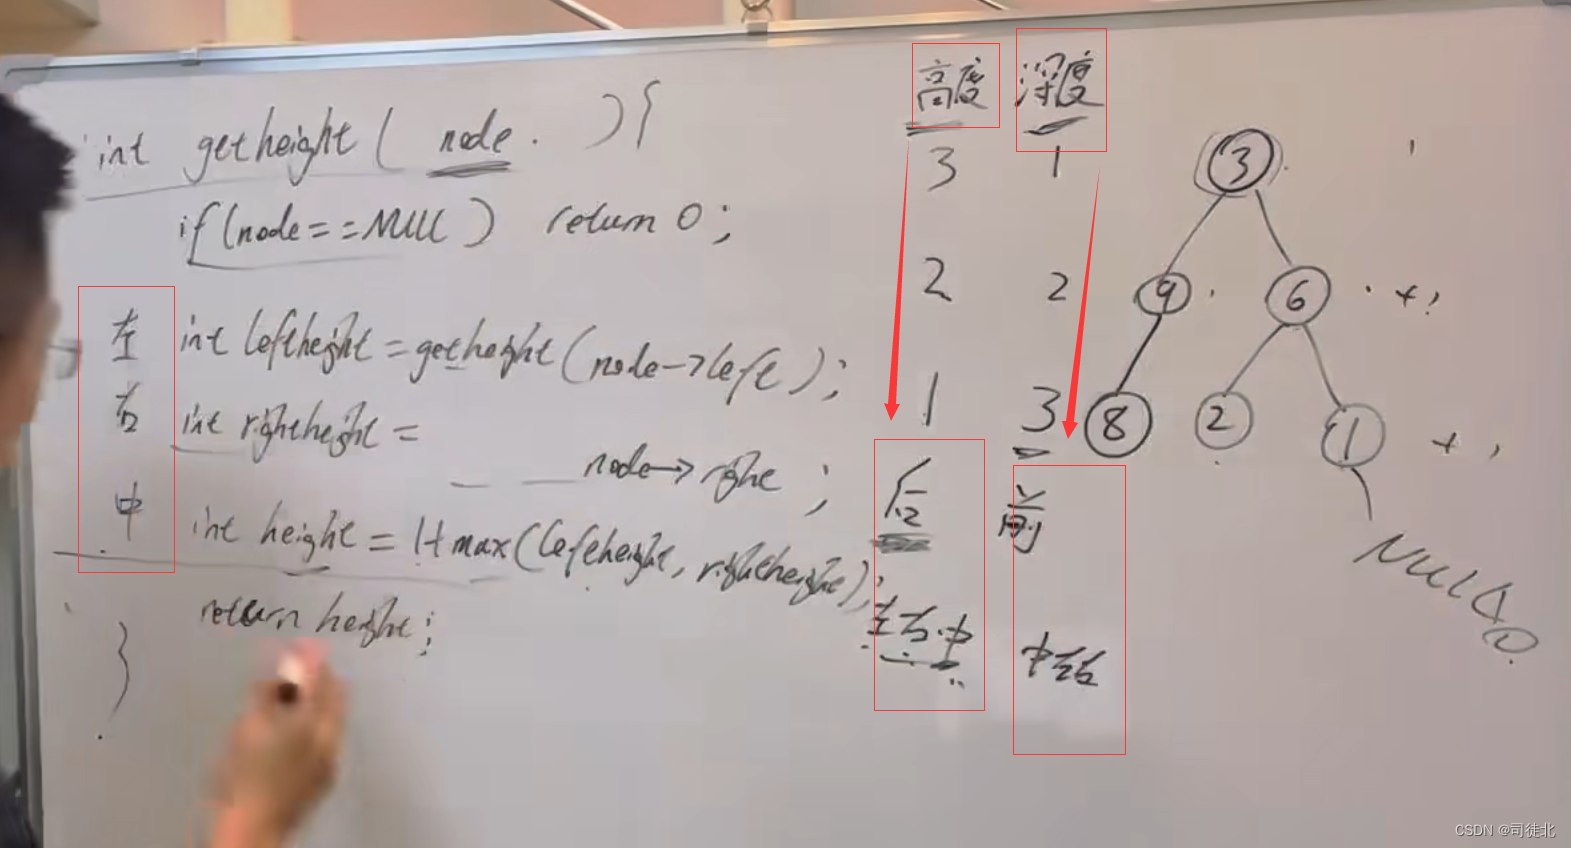 高度 深度
int getheight( node. ){
3 1
3
if(node==NULL) return 0;
2 2
9 6
左 int leftheight=getheight(node->left);
1 3
8 2 1
右 int rightheight=
node->right ;
后 前
中 int height = 1+max(leftheight, rightheight);
NULL 0
return height;
左右中 中左右
}
CSDN @司徒北